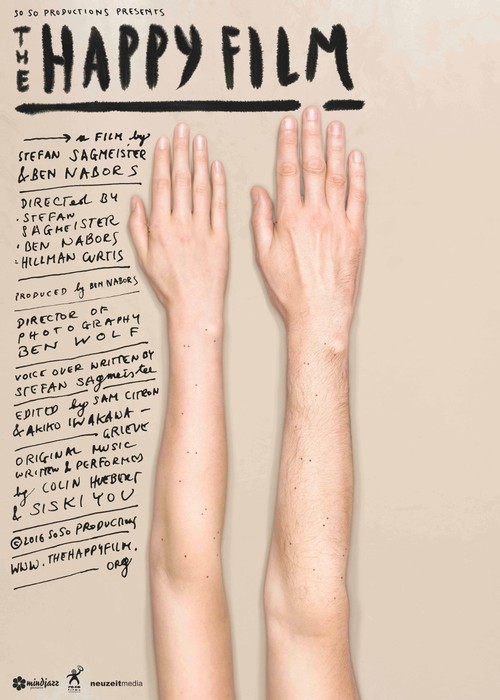 SO SO PRODUCTIONS PRESENTS
THE HAPPY FILM
a FILM by
STEFAN SAGMEISTER
& BEN NABORS
DIRECTED BY
• STEFAN
SAGMEISTER
• BEN NABORS
• HILLMAN CURTIS
PRODUCED by BEN NABORS
DIRECTOR OF
PHOTOGRAPHY
BEN WOLF
VOICE OVER WRITTEN BY
STEFAN SAGMEISTER
EDITED by SAM CITRON
& AKIKO IWAKAWA –
GRIEVE
ORIGINAL MUSIC
WRITTEN & PERFORMED
by COLIN HUEBERT
& SISKIYOU
© 2016 SO SO PRODUCTIONS
WWW.THEHAPPYFILM.
ORG
mindjazz
neuzeitmedia